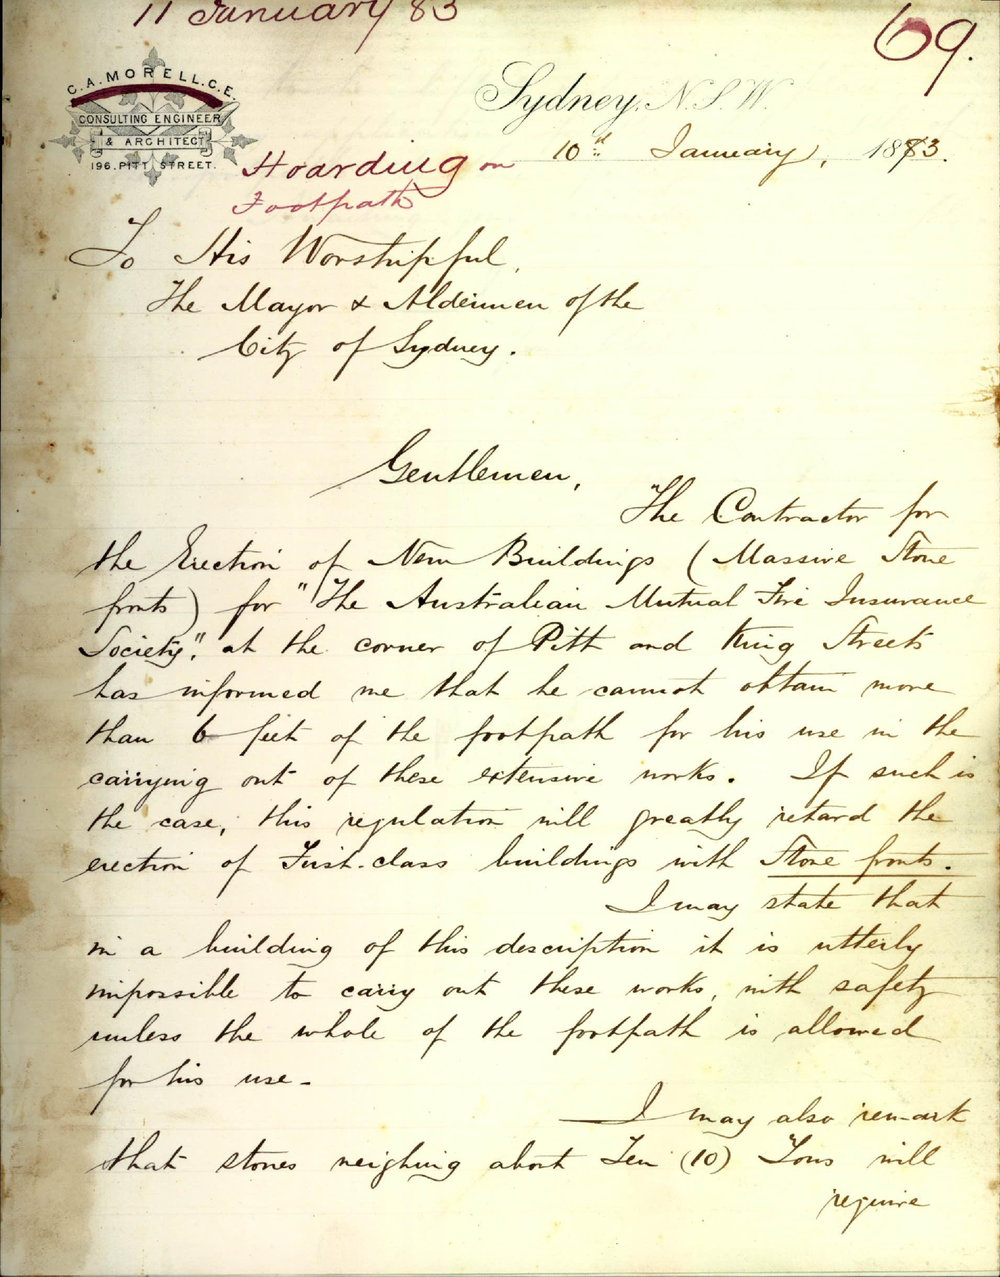 11 January 83
69.
C. A. MORELL. C. E.
CONSULTING ENGINEER
& ARCHITECT
196. PITT STREET.
Sydney, N.S.W.
10th January, 1883.
Hoarding on
Footpath
To His Worshipful,
The Mayor & Aldermen of the
City of Sydney.
Gentlemen,
The Contractor for
the Erection of New Buildings (Massive Stone
fronts) for "The Australian Mutual Fire Insurance
Society", at the corner of Pitt and King Streets
has informed me that he cannot obtain more
than 6 feet of the footpath for his use in the
carrying out of these extensive works. If such is
the case, this regulation will greatly retard the
erection of First-class buildings with Stone fronts.
I may state that
in a building of this description it is utterly
impossible to carry out these works, with safety
unless the whole of the footpath is allowed
for his use-
I may also remark
that stones weighing about Ten (10) Tons will
require